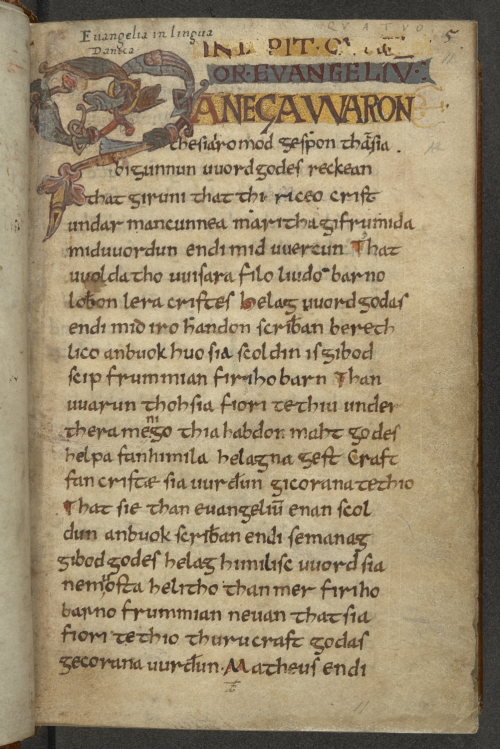 Evangelia in lingua
Danica
5
INCIPIT · QUAT
OR · EVANGELIŪ :
MANEGA WARON
the sia iro mod gespon thā sia .
bigunnun uuord godes reckean
that giruni that thi riceo crist
undar mancunnea maritha gifrumida
mid uuordun endi mid uuercun That
uuolda tho uuisara filo liudo barno
loƀon lera cristes helag uuord godas
endi mid iro handon scriƀan bereth
lico an buok huo sia scoldin is gibod
scip frummian firiho barn Than
uuarun thoh sia fiori te thiu under
thera menigo thia habdon maht godes
helpa fan himila helagna gest Craft
fan cristæ sia uurđun gicorana te thio
That sie than evangeliū enan scol
dun an buok scriƀan endi so manag
gibod godes helag himilisc uuord sia
ne mosta helitho than mer firiho
barno frummian neuan that sia
fiori te thio thuru craft godas
gecorana uurđun · Matheus endi